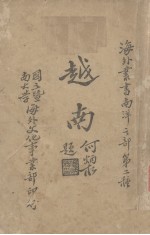 海外叢書南洋之部第二種
越南
何炳松
題
國立暨
南大學
海外文化事業部印行